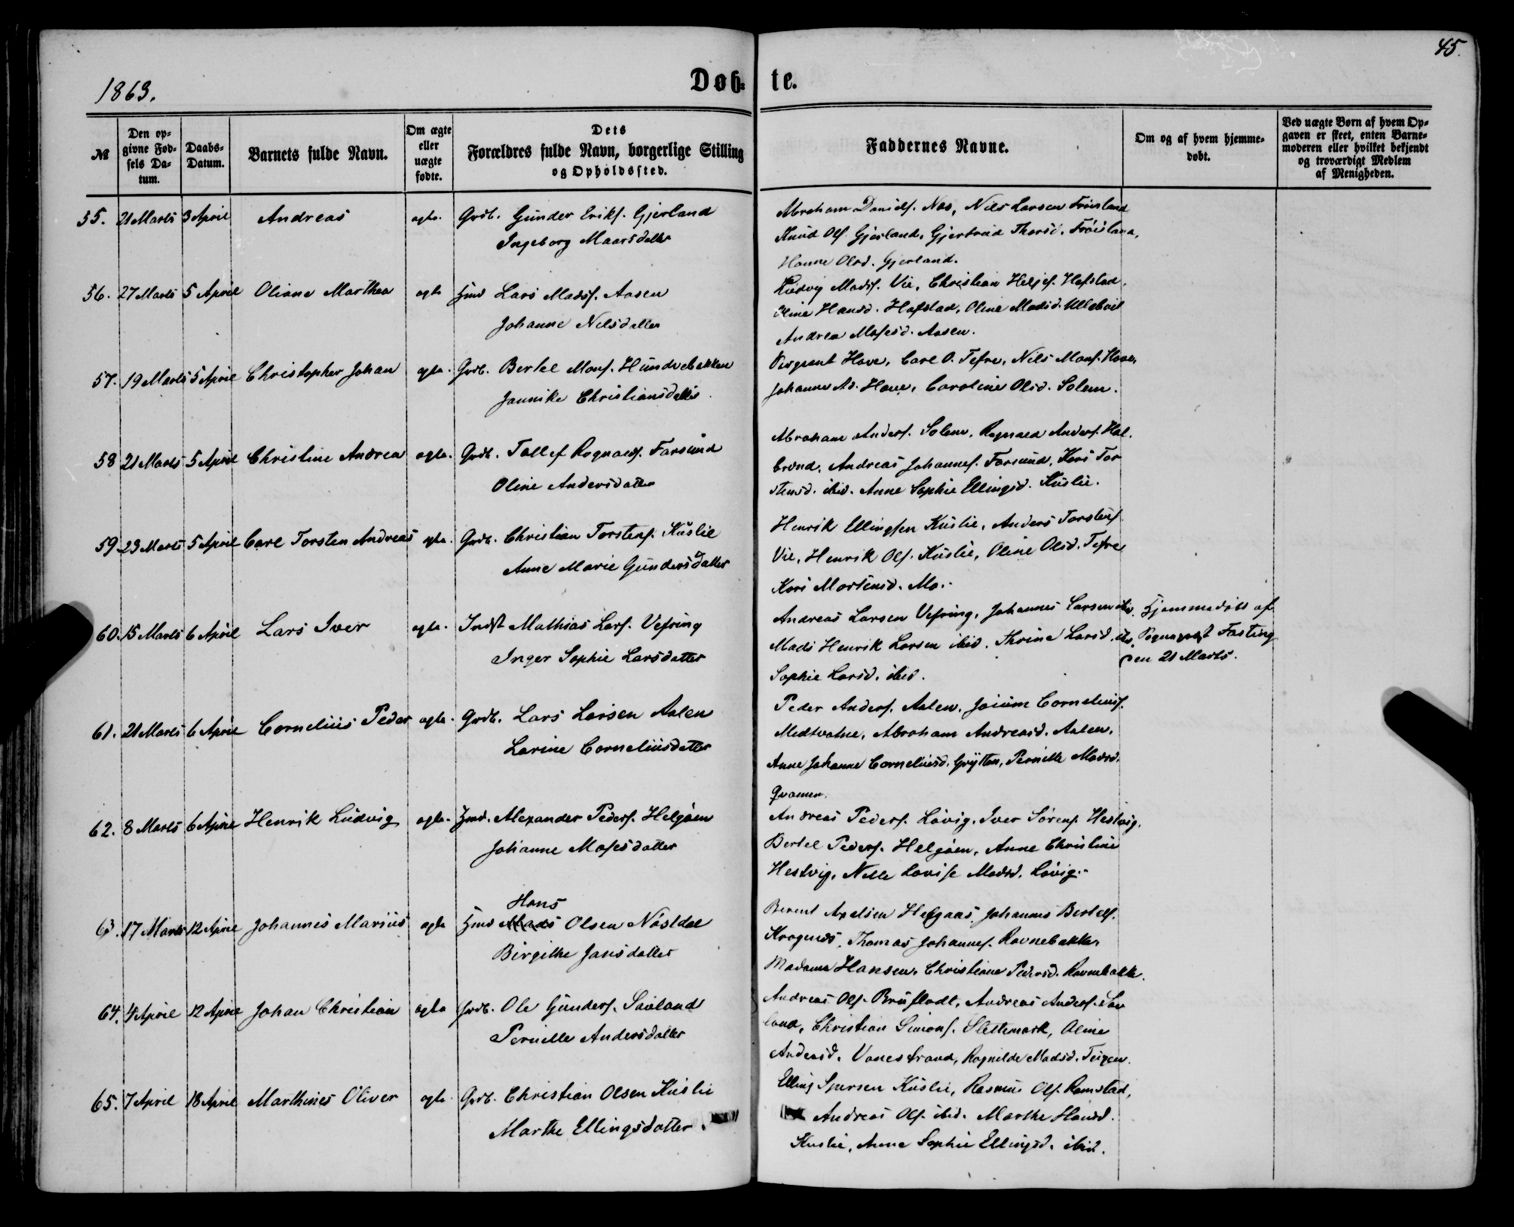 45.
1863.
Døb- te.
№
Den op-
givne Fød-
sels Da-
tum.
Daabs-
Datum.
Barnets fulde Navn.
Om ægte
eller
uægte
fødte.
Dets
Forældres fulde Navn, borgerlige Stilling
og Opholdssted.
Faddernes Navne.
Om og af hvem hjemme-
døbt.
Ved uægte Børn af hvem Op-
gaven er skeet, enten Barne-
moderen eller hvilket bekjendt
og troværdigt Medlem
af Menigheden.
55. 21 Marts 3 April Andreas ægte. Grdb. Gunder Eriks. Gjerland
Ingeborg Maarsdatter
Abraham Daniels. Næs, Nils Larsen
Knud Ols. Gjerland, Gjertrud
Hanne Olsd. Gjerland.
56. 27 Marts 5 April Oliane Marthea ægte Hmd Lars Madss. Aasen
Johanne Nilsdatter
Ludvig Madss. Vie, Christian Heljes. Hafstad,
Oline Hansd. Hafstad, Oline Madsd.
Andrea Mosesd. Aasen.
57. 19 Marts 5 April Christopher Johan ægte. Grdb. Bertel Mons. Hundvebakken
Jannike Christiansdatter.
Sergeant Hove, Carl O. Tefre, Nils Mons. Hove,
Johanne Ad. Hove, Caroline Olsd. Solem.
58 21 Marts 5 April Christine Andrea ægte. Grdb. Tollef Rognals. Farsund
Oline Andersdatter
Abraham Anders. Solem, Rognald Anders. Hal-
brend, Andreas Johannes. Farsund, Kari Tor-
stensd. ibid. Anne Sophie Ellingsd. Kuslie.
59. 23 Marts 5 April Carl Torsten Andreas ægte. Grdb. Christian Torstens. Kuslie
Anne Marie Gundersdatter
Henrik Ellingsen Kuslie, Anders Torstens.
Vie, Henrik Ols. Kuslie, Oline Olsd. Tefre
Kari Mortensd. Mo.
60. 15 Marts 6 April Lars Iver ægte. Indst Mathias Lars. Vefring
Inger Sophie Larsdatter
Andreas Larsen Vefring, Johannes Larsen ibid.
Mads Henrik Larsen ibid. Thrine Larsd. ibid.
Sophie Larsd. ibid.
Hjemmedøbt af
Sogneprest Fasting
den 21 Marts.
61. 21 Marts 6 April Cornelius Peder ægte. Grdb. Lars Larsen Aalen
Larine Corneliusdatter
Peder Anders. Aalen, Joium Cornelius.
Medtvatne, Abraham Andreasd. Aalen,
Anne Johanne Corneliusd. Grytten, Pernille Madsd.
Qvamen.
62. 8 Marts 6 April Henrik Ludvig ægte. Hmd. Alexander Peders. Helgøen
Johanne Mosesdatter
Andreas Peders. Løvig, Iver Sørens. Hestvig,
Bertel Peders. Helgøen, Anne Christine
Hestvig, Nille Lovise Madsd. Løvig.
63. 17 Marts 12 April Johannes Marius ægte Hmd Mads Hans Olsen Nøstdal
Birgithe Jansdatter
Berent Axelsen Helgaas, Johannes Bertels.
Kragnæs, Thomas Johannes. Ravnebakke,
Madame Hansen, Christiane Pedersd. Ravnebakke.
64. 4 April 12 April Johan Christian ægte Grdb. Ole Gunders. Sæland
Pernille Andersdatter
Andreas Ols. Bruflodt, Andreas Anders. Sæ-
land, Christian Simons. Slettemark, Oline
Andersd. Vonestrand, Ragnilde Madsd. Teigen.
65. 7 April 18 April Marthines Oliver ægte. Grdb. Christian Olsen Kuslie
Marthe Ellingsdatter.
Elling Iversen Kuslie, Rasmus Ols. Ramstad,
Andreas Ols. ibid. Marthe Hansd.
Kuslie, Anne Sophie Ellingsd. ibid.